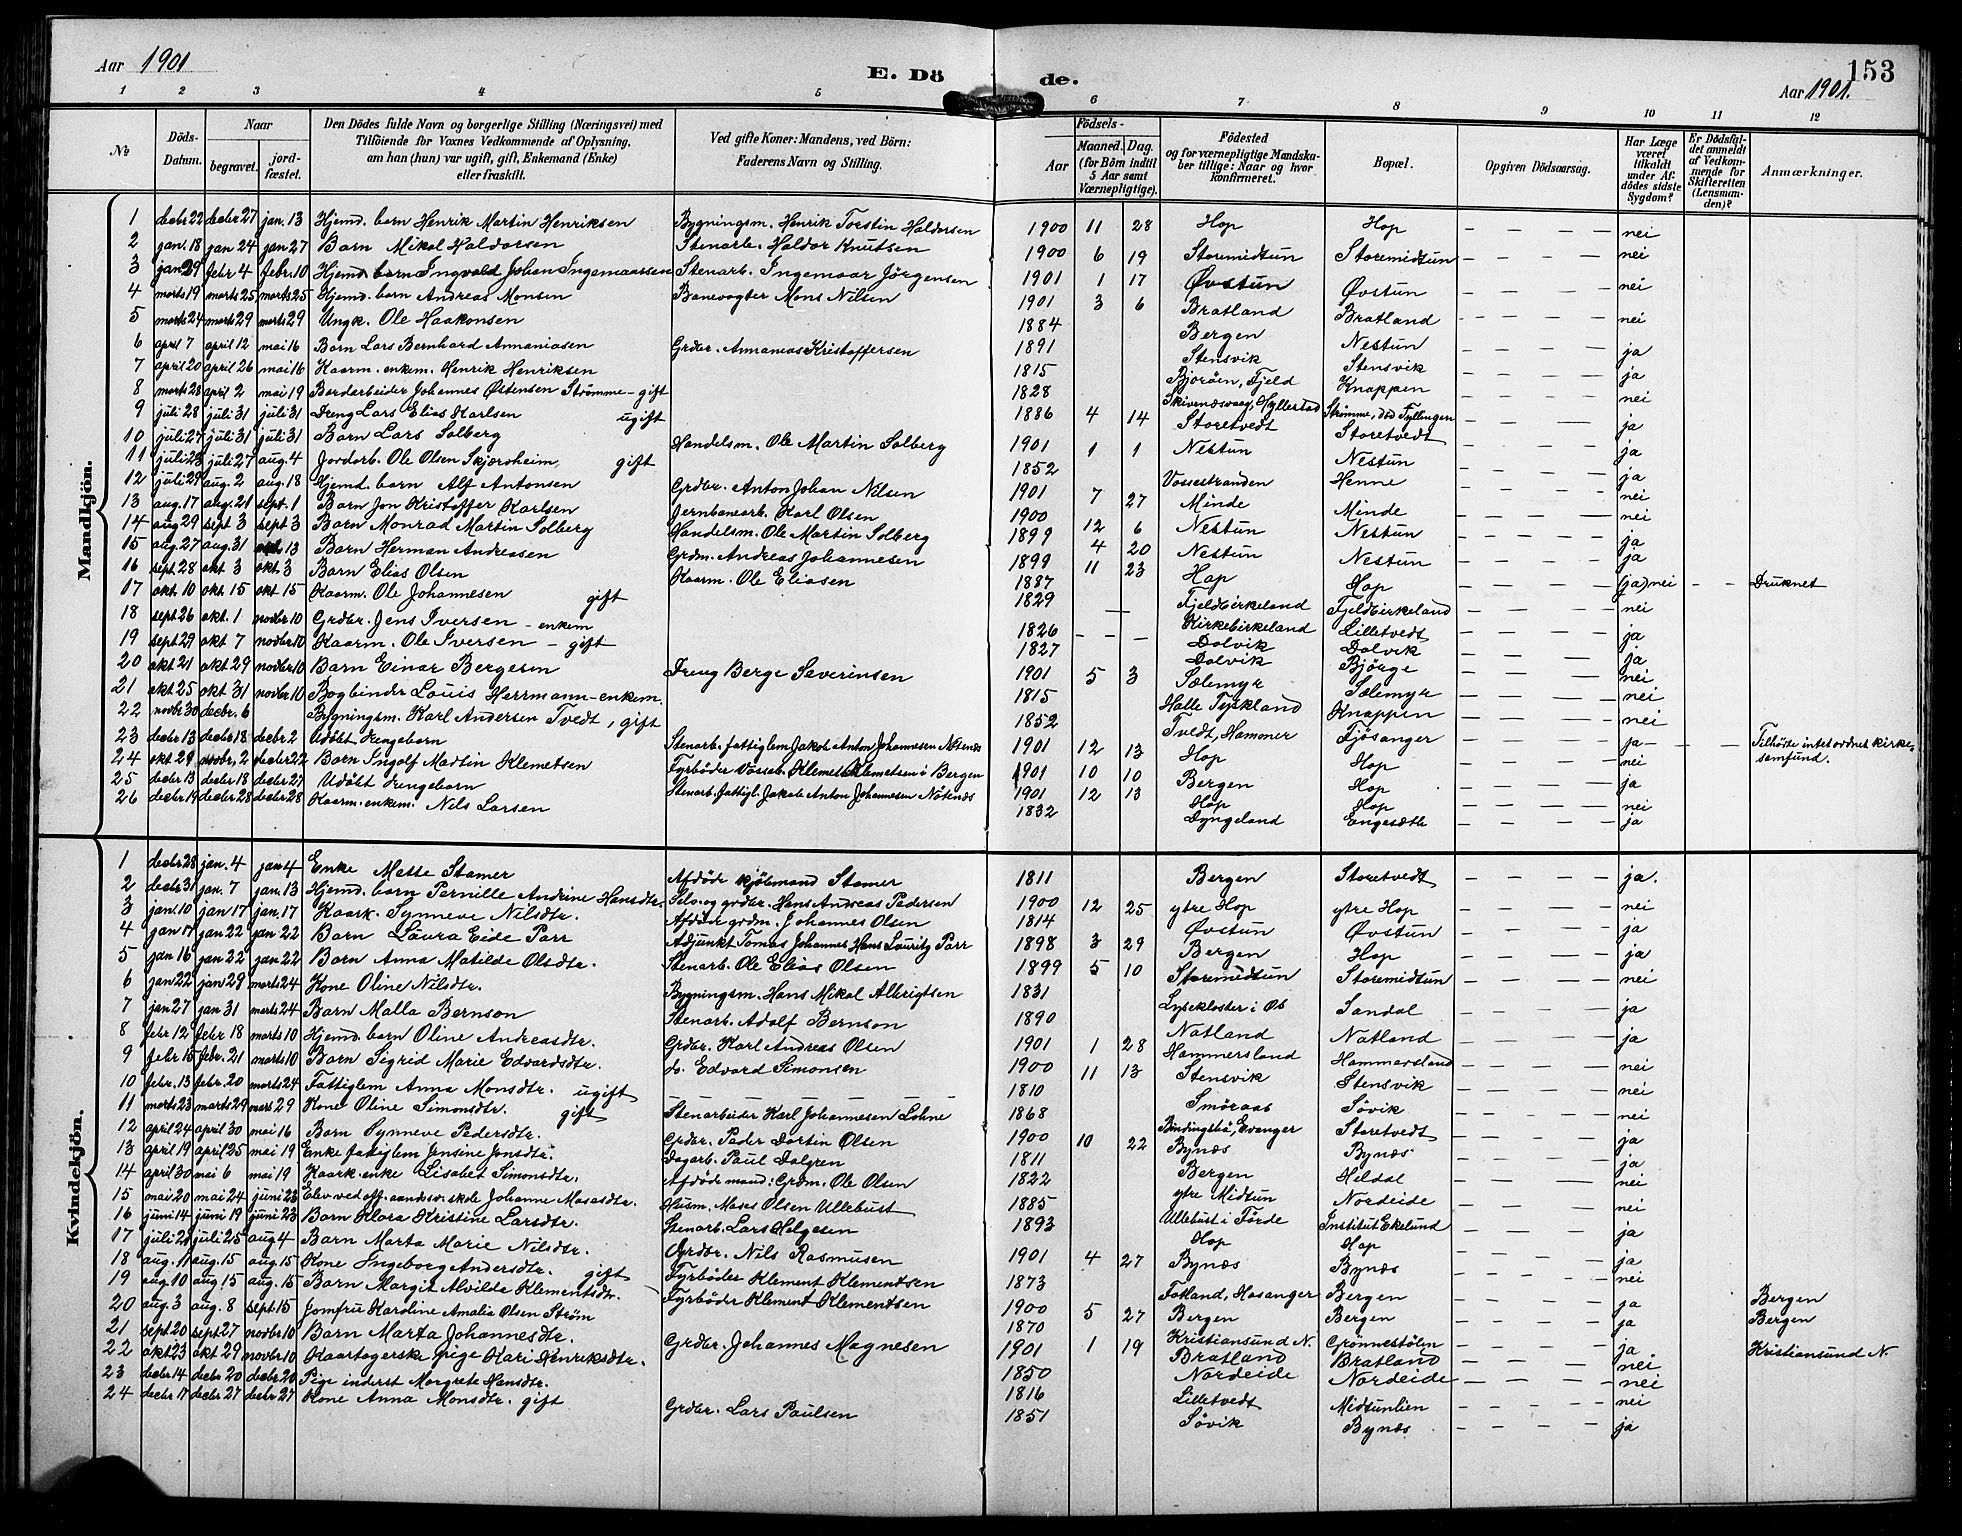 Aar 1901
E. Dö de.
153
Aar 1901.
1 2 3 4 5 6 7 8 9 10 11 12
№ Döds-Datum. Naar begravet. jordfæstet. Den Dödes fulde Navn og borgerlige Stilling (Næringsvei) med Tilföiende for Voxnes Vedkommende af Oplysning, om han (hun) var ugift, gift, Enkemand (Enke) eller fraskilt. Ved gifte Koner: Mandens, ved Börn: Faderens Navn og Stilling. Födsels- Aar Maaned. Dag. (for Börn indtil 5 Aar samt Værnepligtige). Födested og for værnepligtige Mandskaber tillige: Naar og hvor konfirmeret. Bopæl. Opgiven Dödsaarsag. Har Læge været tilkaldt under Afdödes sidste Sygdom? Er Dödsfaldet anmeldt af Vedkommende for Skifteretten (Lensmanden)? Anmærkninger.
Mandkjön.
1 decbr 22 decbr 27 jan. 13 Hjemd. barn Henrik Martin Henriksen Bygningsm. Henrik Torstin Haldorsen 1900 11 28 Hop Hop — — — — nei
2 jan. 18 jan 24 jan 27 Barn Mikal Haldorsen Stenarb. Haldor Knutsen 1900 6 19 Storemidtun Storemidtun — — — — nei
3 jan 29 febr 4 febr. 10 Hjemd. barn Ingvald Johan Ingemaarsen Stenarb. Ingemaar Jörgensen 1901 1 17 Øvstun Øvstun — — — — nei
4 marts 19 marts 25 marts 25 Hjemd. barn Andreas Monsen Banevogter Mons Nilsen 1901 3 6 Bratland Bratland — — — — nei
5 marts 24 marts 29 marts 29 Ungk. Ole Haakonsen 1884 Bergen Nestun — — — — ja
6 april 7 april 12 mai 16 Barn Lars Bernhard Annaniasen Grdbr. Annanias Kristoffersen 1891 Stensvik Stensvik — — — — ja
7 april 20 april 26 mai 16 Kaarm. enkem. Henrik Henriksen 1815 Bjoröen, Fjeld Knappen — — — — nei
8 marts 28 april 2 mai 19 Bordarbeider Johannes Östensen Strömme - gift 1828 Skivenesvaag, Hyllestad Strömme, död Fyllingen — — — — ja
9 juli 28 juli 31 juli 31 Dreng Lars Elias Karlsen ugift 1886 4 14 Storetvedt Storetvedt — — — — ja
10 juli 27 juli 31 juli 31 Barn Lars Solberg Handelsm. Ole Martin Solberg 1901 1 1 Nestun Nestun — — — — ja
11 juli 23 juli 27 aug. 4 Jordarb. Ole Olsen Skjærsheim, gift 1852 Vossestranden Henne — — — — nei
12 juli 29 aug. 2 aug. 18 Hjemd. barn Alf Antonsen Grdbr. Anton Johan Nilsen 1901 7 27 Minde Minde — — — — nei
13 aug. 17 aug. 21 sept. 1 Barn Jon Kristoffer Karlsen Jernbanearb. Karl Olsen 1900 12 6 Nestun Nestun — — — — ja
14 aug 29 sept 3 sept 3 Barn Monrad Martin Solberg Handelsm. Ole Martin Solberg 1899 4 20 Nestun Nestun — — — — ja
15 aug. 27 aug. 31 13 Barn Herman Andreasen Grdm. Andreas Johannesen 1899 11 23 Hop Hop — — — — (ja) nei — — Druknet
16 sept. 28 okt 3 okt. 3 Barn Elias Olsen Kaarm. Ole Eliasen 1887 Fjeldbirkeland Fjeldbirkeland — — — — nei
17 okt. 10 okt. 15 okt 15 Kaarm. Ole Johannesen gift 1829 — Kirkebirkeland Lilletvedt — — — — ja
18 sept 26 okt. 1 novbr 10 Grdbr. Jens Iversen - enkem 1826 — — — Dolvik Dolvik — — — — ja
19 sept 29 okt 7 novbr 10 Kaarm. Ole Iversen - gift 1827 Dolvik Bjørge — — — — nei
20 okt 21 okt 29 novbr 10 Barn Einar Bergesen Dreng Berge Severinsen 1901 5 3 Sælemyr Sælemyr — — — — nei
21 okt 25 okt 31 novbr 10 Bogbinder Louis Herrmann - enkem. 1815 Halle Tyskland Knappen — — — — nei
22 novbr 30 decbr. 6 Bygningsm. Karl Andersen Tvedt, gift 1852 Tvedt, Hammer Fjösanger — — — — ja — — — Tilhörte intet ordnet kirkesamfund.
23 decbr 13 decbr 18 decbr 2 Udöbt drengebarn Stenarb. fattiglem Jakob Anton Johannesen Nötenes 1901 12 13 Hop Hop — — — — nei
24 okt 29 novbr. 2 decbr 22 Barn Ingolf Martin Klemetsen Fyrböder Vosseb. Klemet Klemetsen i Bergen 1901 10 10 Bergen Hop — — — — ja
25 decbr 13 decbr 18 decbr 27 Udöbt drengebarn Stenarb. fattigl. Jakob Anton Johannesen Nötenes 1901 12 13 Hop Hop — — — — nei
26 decbr 19 decbr 28 decbr 28 Kaarm. enkem. Nils Larsen 1832 Dyngeland Engesæth — — — — ja
Kvindekjön.
1 decbr 28 jan. 4 jan 4 Enke Mette Stamer Afdöde kjöbmand Stamer 1811 Bergen Storetvedt — — — — ja.
2 decbr 31 jan. 7 jan. 13 Hjemd. barn Pernille Andrine Hansdtr. Selv. og grdbr. Hans Andreas Pedersen 1900 12 25 ytre Hop ytre Hop — — — — nei
3 jan. 10 jan 17 jan. 17 Kaark. Synneve Nilsdtr. Afdöde grdm. Johannes Olsen 1814 Øvstun Øvstun — — — — ja
4 jan 17 jan 22 jan 22 Barn Laura Eide Parr Adjunkt Tomas Johannes Hans Lauritz Parr 1898 3 29 Bergen Hop — — — — ja
5 jan 16 jan 22 jan 22 Barn Anna Matilde Olsdtr. Stenarb. Ole Elias Olsen 1899 5 10 Storemidtun Storemidtun — — — — nei
6 jan 22 jan 29 marts 24 Kone Oline Nilsdtr. Bygningsm. Hans Mikal Albrigtsen 1831 Lysekloster i Os Sandal — — — — ja
7 jan 27 jan 31 marts 24 Barn Malla Bernson Stenarb. Adolf Bernson 1890 Natland Natland — — — — ja
8 febr 12 febr 18 marts 10 Hjemd. barn Oline Andreasdtr. Grdbr. Karl Andreas Olsen 1901 1 28 Hammersland Hammersland — — — — nei
9 febr 15 febr. 21 marts 10 Barn Sigrid Marie Edvardsdtr. do. Edvard Simonsen 1900 11 13 Stensvik Stensvik — — — — nei
10 febr. 13 febr. 20 marts 24 Fattiglem Anna Monsdtr. ugift 1810 Smöraas Sövik — — — — nei
11 marts 23 marts 29 marts 29 Kone Oline Simonsdtr. gift Stenarbeider Karl Johannesen Lohne 1868 Bindingsbø, Evanger Storetvedt — — — — ja
12 april 24 april 30 mai 16 Barn Synneve Pedersdtr. Grdbr. Peder Dortin Olsen 1900 10 22 Bynæs Bynæs — — — — ja
13 april 19 april 25 mai 19 Enke fattiglem Jensine Jonsdtr. Dagarb. Paul Dalgren 1811 Bergen Heldal — — — — nei
14 april 30 mai 6 mai 19 Kaark. enke Lisabet Simonsdtr. Afdöde mand: Grdm. Ole Olsen 1822 ytre Midtun Nordeide — — — — nei
15 mai 20 mai 24 juni 23 Elev ved off. aandsv. skole Johanne Masasdtr. Husm. Moses Olsen Ullebust 1885 Ullebust i Förde Institut Ekelund — — — — ja
16 juni 14 juni 19 juni 23 Barn Klara Kristine Larsdtr. Stenarb. Lars Helgesen 1893 Hop Hop — — — — ja
17 juli 21 juli 25 aug 4 Barn Marta Marie Nilsdtr. Grdbr. Nils Rasmusen 1901 4 27 Bynæs Bynæs — — — — nei
18 aug. 11 aug. 15 aug. 15 Kone Ingeborg Andersdtr. gift Fyrböder Klement Klementsen 1873 Fotland, Hosanger Bergen — — — — ja Bergen
19 aug. 10 aug 15 aug. 15 Barn Margit Alvilda Klementsdtr. Fyrböder Klement Klementsen 1900 5 27 Bergen Bergen — — — — ja Bergen
20 aug. 3 aug. 8 sept. 15 Jomfru Karoline Amalia Olsen Ström 1870 Kristiansund N. Grönnestölen — — — — ja Kristiansund N.
21 sept 20 sept 27 novbr 10 Barn Marta Johannesdtr. Grdbr. Johannes Magnesen 1901 1 19 Bratland Bratland — — — — nei
22 okt 23 okt 29 novbr 10 Kaartagerske pige Kari Henriksdtr. 1850 Nordeide Nordeide — — — — nei
23 decbr 14 decbr 20 decbr 20 Pige inderst Margrete Hansdtr. 1816 Lilletvedt Midtunlien — — — — nei
24 decbr 17 decbr 27 decbr 27 Kone Anna Monsdtr. gift Grdbr. Lars Paulsen 1851 Sövik Bynæs — — — — ja